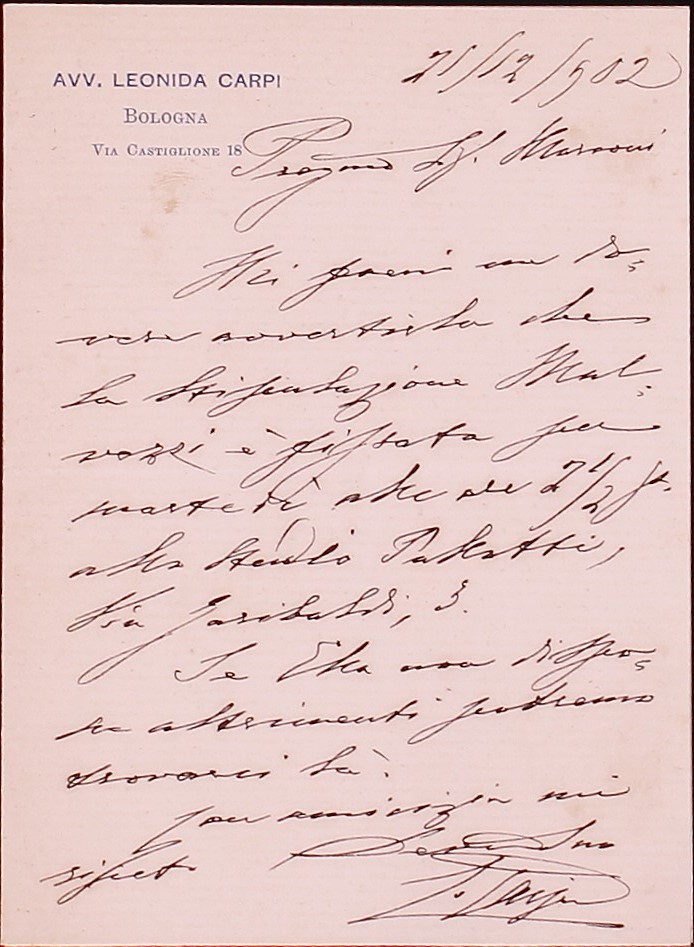 AVV. LEONIDA CARPI
BOLOGNA
VIA CASTIGLIONE 18
21/12/902
Pregmo Sigr. Marconi
Mi preme do-
vere avvertirla che
la stipulazione Mal-
vezzi è fissata per
martedì alle ore 2 1/2 p.
allo studio Pallotti,
Via Garibaldi, 3.
Se Ella non dispo-
ne altrimenti potremo
trovarci là.
Con amicizia mi
rifeto Dev. Suo
L. Carpi